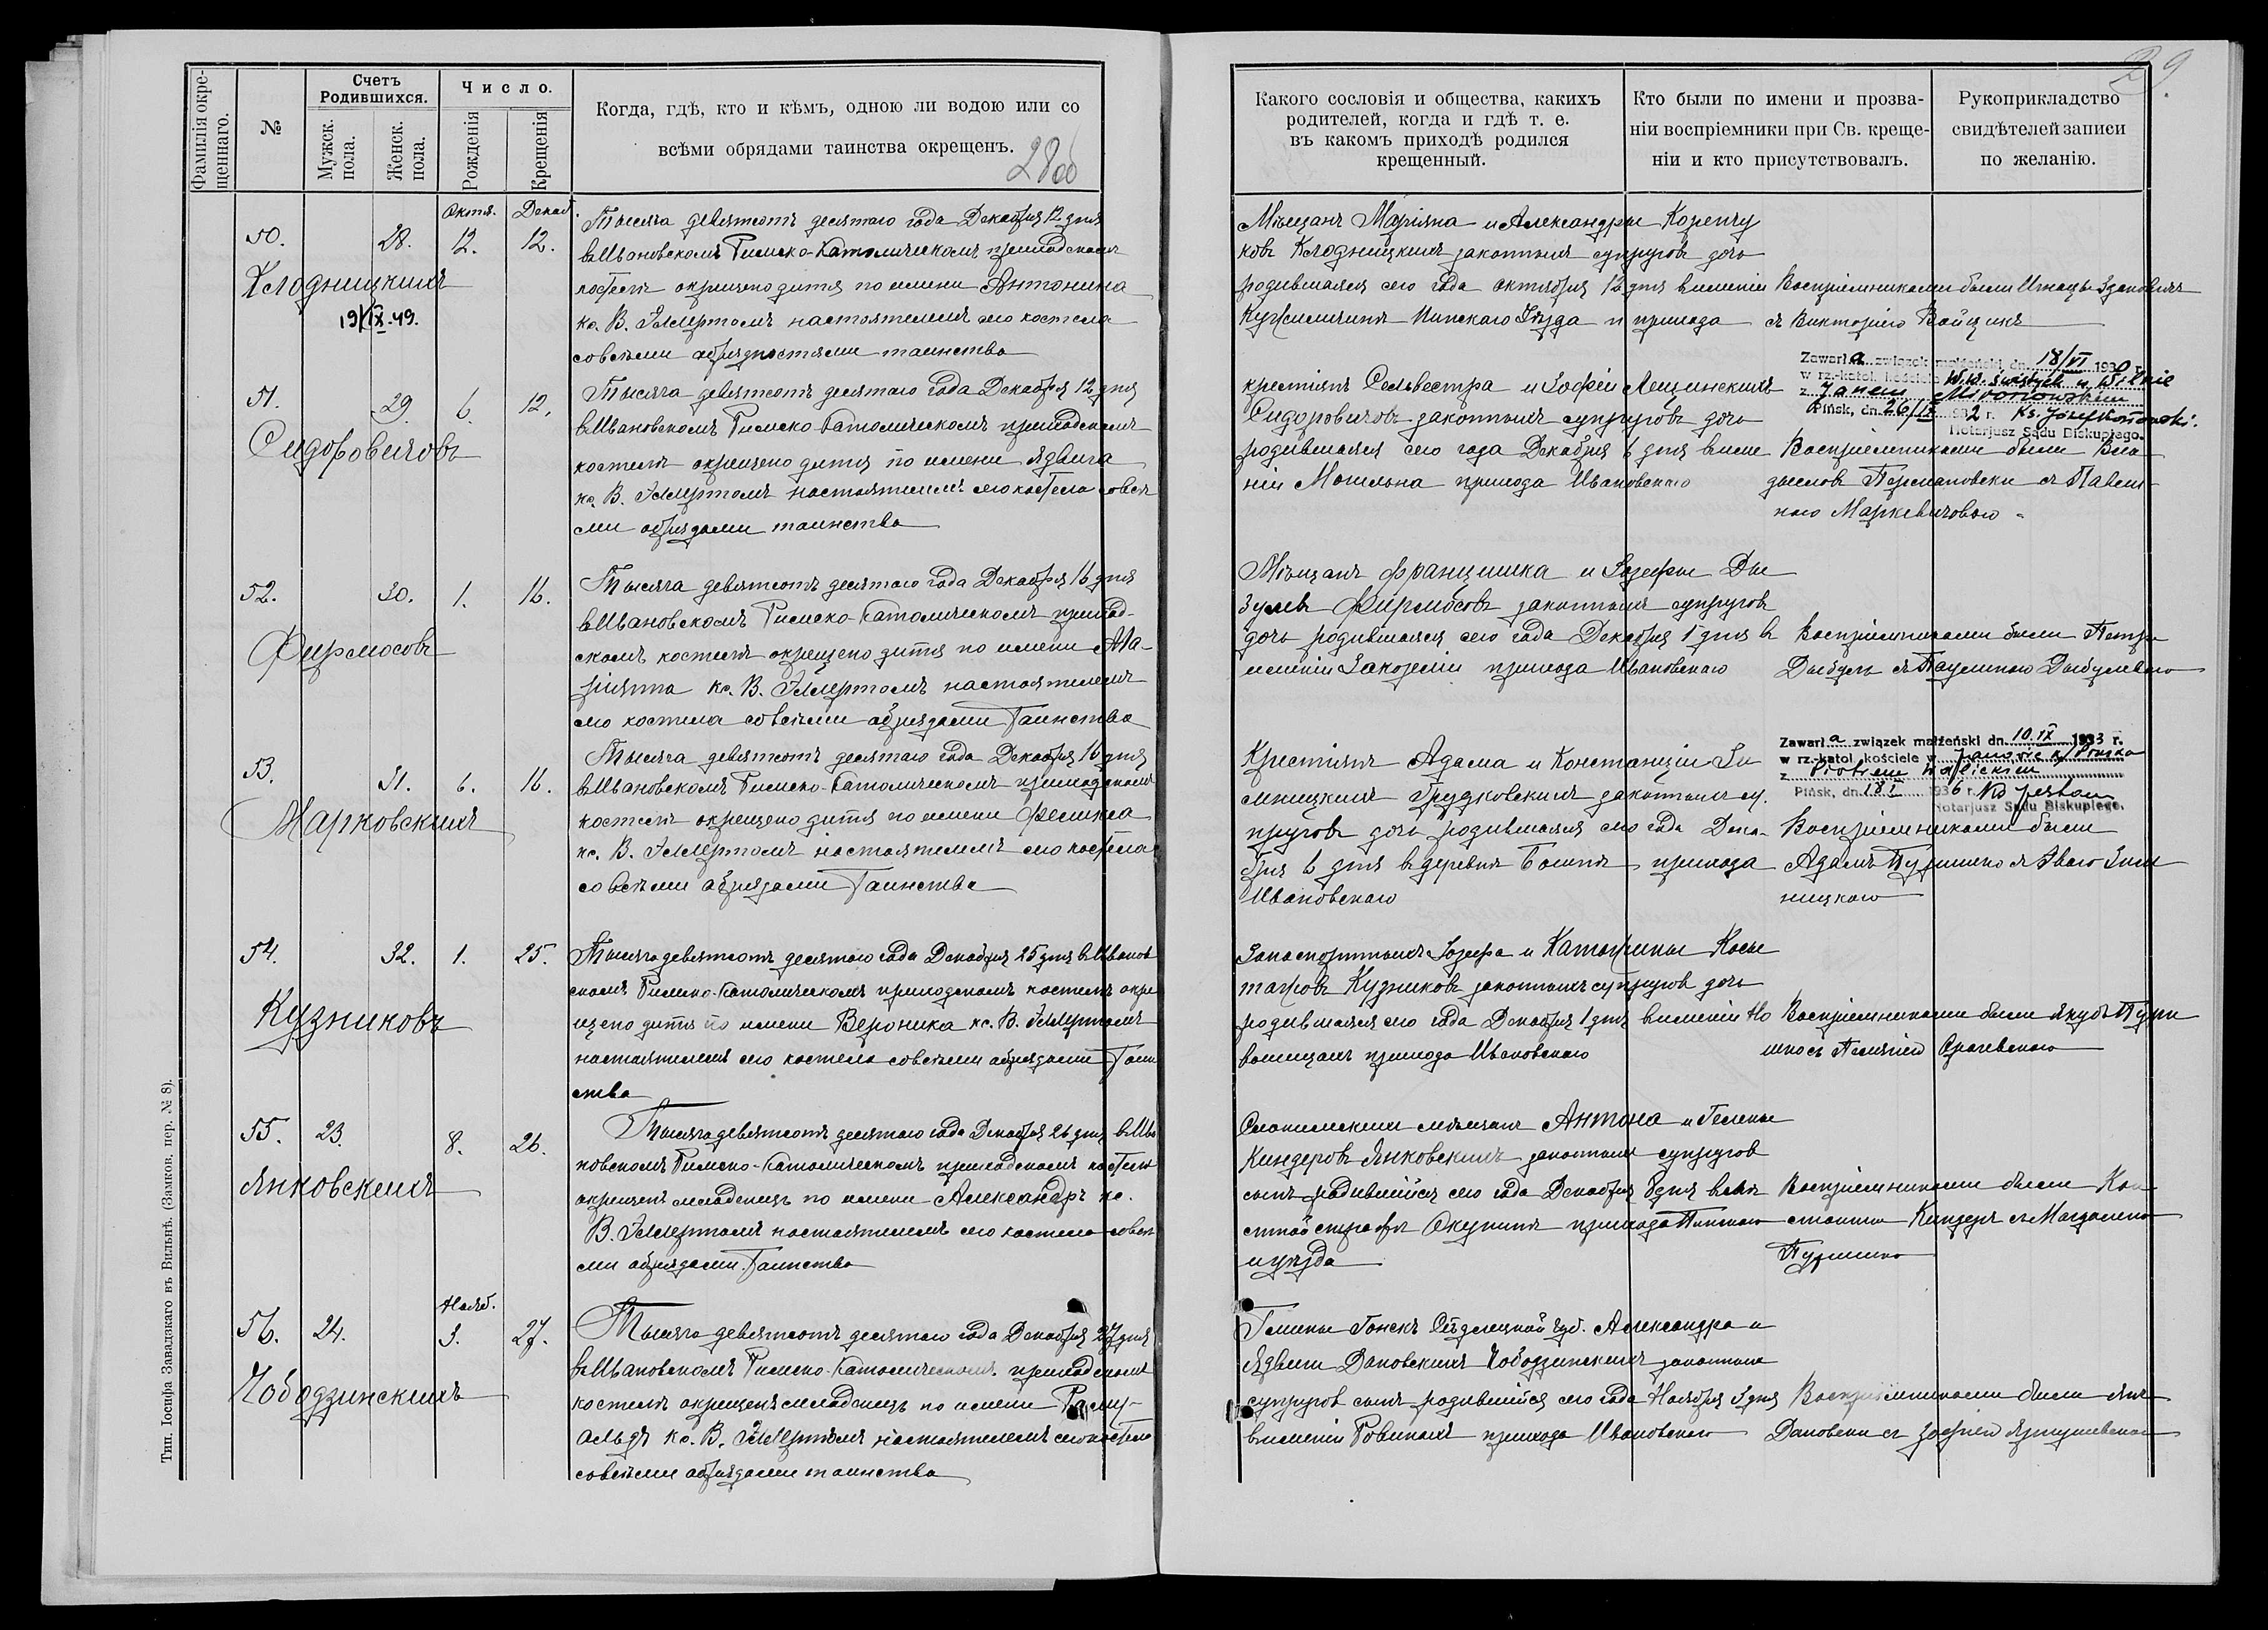 29.
Фамилія окре-
щеннаго.
№
Счетъ
Родившихся.
Мужск.
пола.
Женск.
пола.
Число.
Рожденія
Крещенія
Когда, гдѣ, кто и кѣмъ, одною ли водою или со
всѣми обрядами таинства окрещенъ.
Какого сословія и общества, какихъ
родителей, когда и гдѣ т. е.
въ какомъ приходѣ родился
крещенный.
Кто были по имени и прозва-
ніи воспріемники при Св. креще-
ніи и кто присутствовалъ.
Рукоприкладство
свидѣтелей записи
по желанію.
50.
28.
Октя.
12.
Декаб.
12.
Клодницкихъ
19/IX.49.
Тысяча девятсотъ десятаго года Декабря 12 дня
въ Ивановскомъ Римско-Католическомъ приходскомъ
костелѣ окрещено дитя по имени Антонина
кс. В. настоятелемъ сего костела
со всѣми обрядностями таинства
Мѣщанъ Маріяна и Александры
Клодницкихъ законныхъ супруговъ дочь
родившаяся сего года октября 12 дня въ имѣніи
Пинскаго Уѣзда и прихода
Воспріемниками были Игнацы Здановичъ
съ Викторіею Войцикъ
51.
29.
6.
12.
Сидоровичовъ
Тысяча девятсотъ десятаго года Декабря 12 дня
въ Ивановскомъ Римско-Католическомъ приходскомъ
костелѣ окрещено дитя по имени Ядвига
кс. В. настоятелемъ сего костела со всѣ
ми обрядами таинства
крестіянъ Сельвестра и Зофіи Лещинскихъ
Сидоровичовъ законныхъ супруговъ дочь
родившаяся сего года Декабря 6 дня въ имѣ
ніи Могильна прихода Ивановскаго
Zawarła związek małżeński dn. 18/VI 1930 r.
w rz.-katol. kościele W.W. Świętych w Wilnie
z Janem Mironowskim
Pińsk, dn. 26/IX 1932 r. Ks. Józef
Notarjusz Sądu Biskupiego.
Воспріемниками были Вла
дыславъ съ Павли-
ною Маркевичовою
52.
30.
1.
16.
Фирмосовъ
Тысяча девятсотъ десятаго года Декабря 16 дня
въ Ивановскомъ Римско-Католическомъ приход-
скомъ костелѣ окрещено дитя по имени Ма-
ріянна кс. В. настоятелемъ
сего костела со всѣми обрядами Таинства
Мѣщанъ Францишка и Іозефы Ды
Фирмосовъ законныхъ супруговъ
дочь родившаяся сего года Декабря 1 дня въ
имѣніи прихода Ивановскаго
Воспріемниками были Петръ
съ Паулиною
53.
31.
6.
16.
Марковскихъ
Тысяча девятсотъ десятаго года Декабря 16 дня
въ Ивановскомъ Римско-Католическомъ приходскомъ
костелѣ окрещено дитя по имени Феликса
кс. В. настоятелемъ сего костела
со всѣми обрядами Таинства
Крестіянъ Адама и Констанціи Зи
мницкихъ законныхъ су
пруговъ дочь родившаяся сего года Дека-
бря 6 дня въ деревнѣ прихода
Ивановскаго
Zawarła związek małżeński dn. 10.IX 1933 r.
w rz.-katol. kościele w Janowie k/Pińska
z Piotrem
Pińsk, dn. 18 I 1936 r.
Notarjusz Sądu Biskupiego.
Воспріемниками были
Адамъ съ Эвою Зим
ницкою
54.
32.
1.
25.
Кузниковъ
Тысяча девятсотъ десятаго года Декабря 25 дня въ Иванов
скомъ Римско-Католическомъ приходскомъ костелѣ окре
щено дитя по имени Вероника кс. В.
настоятелемъ сего костела со всѣми обрядами Таин
ства
Іозефа и Катарины
Кузниковъ законныхъ супруговъ дочь
родившаяся сего года Декабря 1 дня въ имѣніи Но
прихода Ивановскаго
Воспріемниками были Якубъ
55.
23.
8.
26.
Янковскихъ
Тысяча девятсотъ десятаго года Декабря 26 дня въ Ива
новскомъ Римско-Католическомъ приходскомъ костелѣ
окрещенъ младенецъ по имени Александръ кс.
В. настоятелемъ сего костела со всѣ
ми обрядами Таинства
мѣщанъ Антона и Гелены
Киндеровъ Янковскихъ законныхъ супруговъ
сынъ родившійся сего года Декабря 8 дня въ
Окунинѣ прихода Пинскаго
и уѣзда
Воспріемниками были Кон
стантъ Киндеръ съ Магдаленою
56.
24.
Нояб.
3.
27.
Чободзинскихъ
Тысяча девятсотъ десятаго года Декабря 27 дня
въ Ивановскомъ Римско-Католическомъ приходскомъ
костелѣ окрещенъ младенецъ по имени Рому-
альдъ кс. В. настоятелемъ сего костела
со всѣми обрядами таинства
Гмины Гонскъ Сѣдлецкой губ. Александра и
Ядвиги Дановскихъ Чободзинскихъ законныхъ
супруговъ сынъ родившійся сего года Ноября 3 дня
въ имѣніи Ровинахъ прихода Ивановскаго
Воспріемниками были Янъ
Дановски съ Зофіею
Тип. Іосифа Завадзкаго въ Вильнѣ. (Замков. пер. № 8).